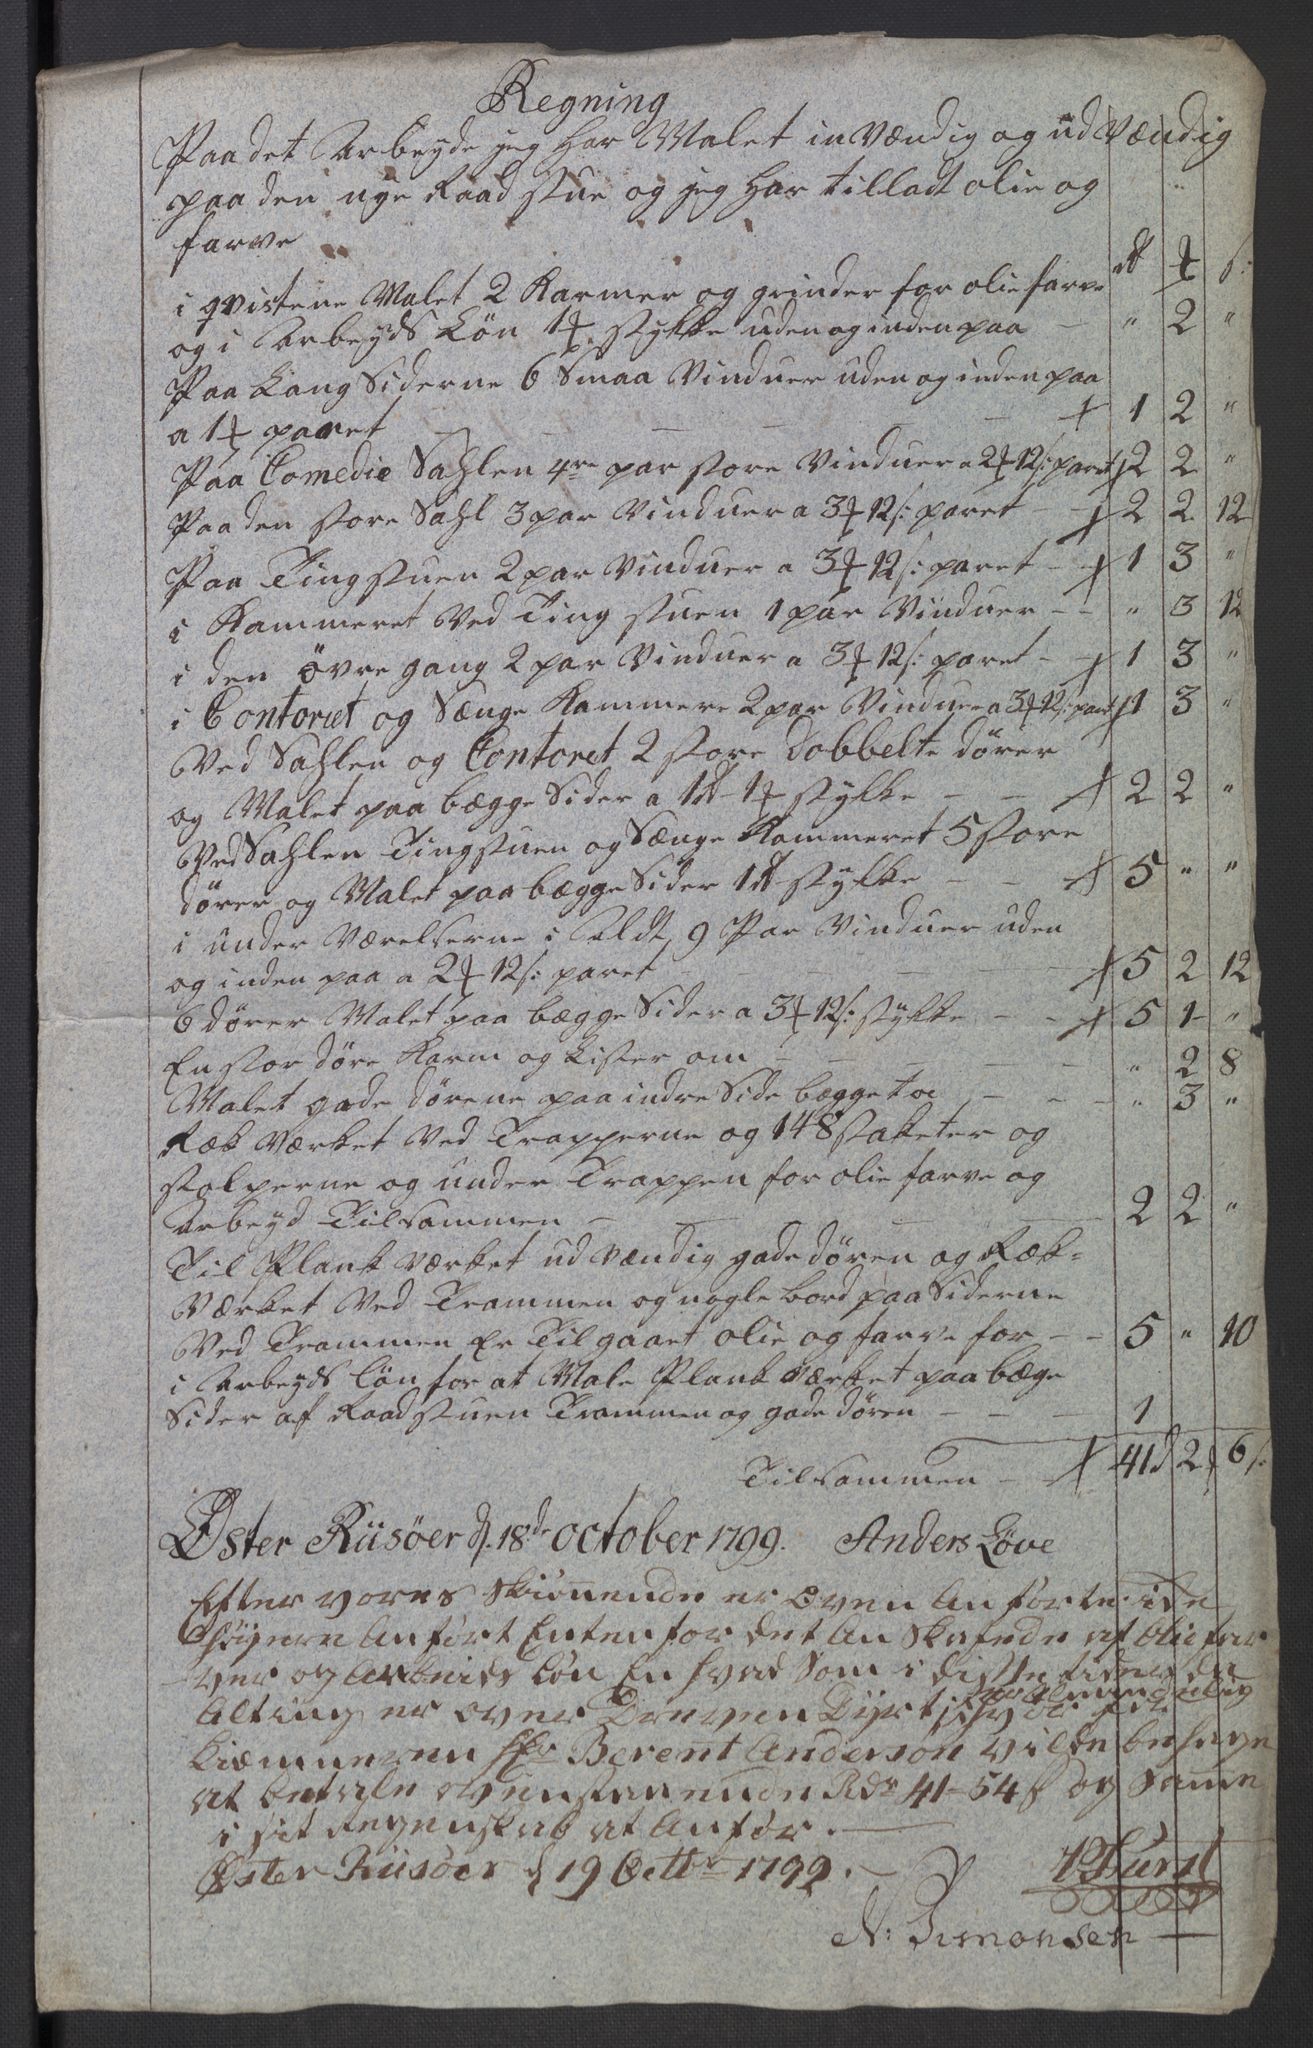 Regning
Paa det Arbeyde jeg har Malet in Vændig og ud Vændig
paa den nye Raad stue og jeg har tilladt olie og
farve
i qvistene Malet 2 Karmer og grinder for olie farve
og i Arbeyds Løn 1 ₰ stykke uden og inden paa — " 2 "
Paa Lang Siderne 6 Smaa Vinduer uden og inden paa
a 1 ₰ paret — — — 1 2 "
Paa Comedie Sahlen 4re par store Vinduer a 2 ₰ 12 s: paret 2 2 "
Paa den store Sahl 3 par Vinduer a 3 ₰ 12 s: paret - - 2 2 12
Paa Tingstuen 2 par Vinduer a 3 ₰ 12 s: paret - - 1 3 "
i Kammeret Ved Ting stuen 1 par Vinduer - - " 3 12
i den övre gang 2 par Vinduer a 3 ₰ 12 s: paret - - 1 3 "
i Contoret og Sænge Kammere 2 par Vinduer a 3 ₰ 12 s: paret 1 3 "
Ved Sahlen og Contoret 2 store Dobbelte dører
og Malet paa bægge Sider a 1 rd 1 ₰ stykke — — 2 2 "
Ved Sahlen Tingstuen og Sænge Kammeret 5 store
dører og Malet paa bægge Sider 1 rd stykke — — 5 " "
i under Værelserne i Aldt 9 Par Vinduer uden
og inden paa a 2 ₰ 12 s: paret — — — 5 2 12
6 dører Malet paa bægge Sider a 3 ₰ 12 s: stykke - - 5 1 "
En stor døre Karm og Lister om — — — " 2 8
Malet gade dørene paa indre Side bægge to — — " 3 "
Ræk Værket Ved Trapperne og 148 staketer og
stolperne og under Trappen for olie farve og
Arbeyd Tilsammen — — — 2 2 "
Til Plank Værket ud Vændig gade døren og Ræk-
Værket Ved Trammen og nogle bord paa Siderne
Ved Trammen Er Til gaaet olie og farve for - - 5 " 10
i Arbeyds Løn for at Male Plank Værket paa bæge
Sider af Raadstuen Trammen og gade døren — — 1
Tilsammen — 41 d 2 ₰ 6 s:
Øster Riisöer d. 18de october 1799. Anders Løve
Efter vores Skiønnende er Oven Anførte
Anført Enten for det An Skafende af Olie far
ver og Arbeids Løn En hvad Som i disse tider da
Alting er over Dreven Dyrt hvor for
Kiæmneren Hr Berent Anderson vilde behage
at betale ovenstaaende Rdr 41 - 54 s og Samme
i sit Regenskab at Anfør. —
Øster Riisöer d 19 Octbr 1799. —
N: Simonsen —